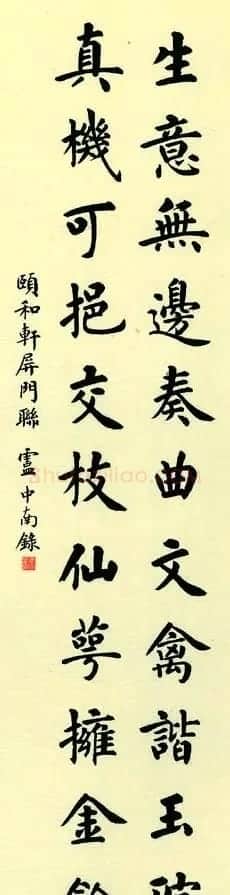 生意無邊奏曲文禽諧玉
真機可挹交枝仙萼擁金
頤和軒屏門聯 盧中南錄